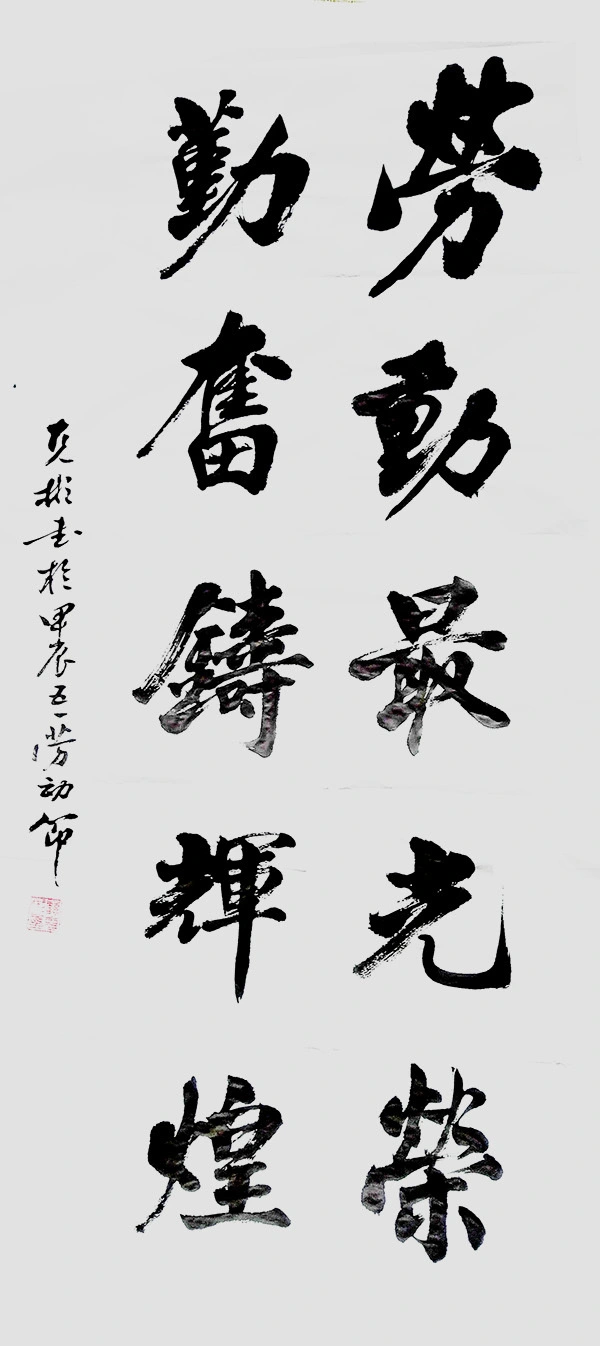 勞動最光榮
勤奮鑄輝煌
克彬书於甲辰五一劳动節